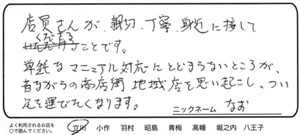 店員さんが、親切、丁寧、身近に接して
くださることです。
単純なマニュアル対応にとどまらないところが、
昔ながらの商店街 地域店を思い起こし、つい
足を運びたくなります。
ニックネーム なお
よく利用されるお店を
○で囲んでください。
立川 小作 羽村 昭島 青梅 高幡 堀之内 八王子